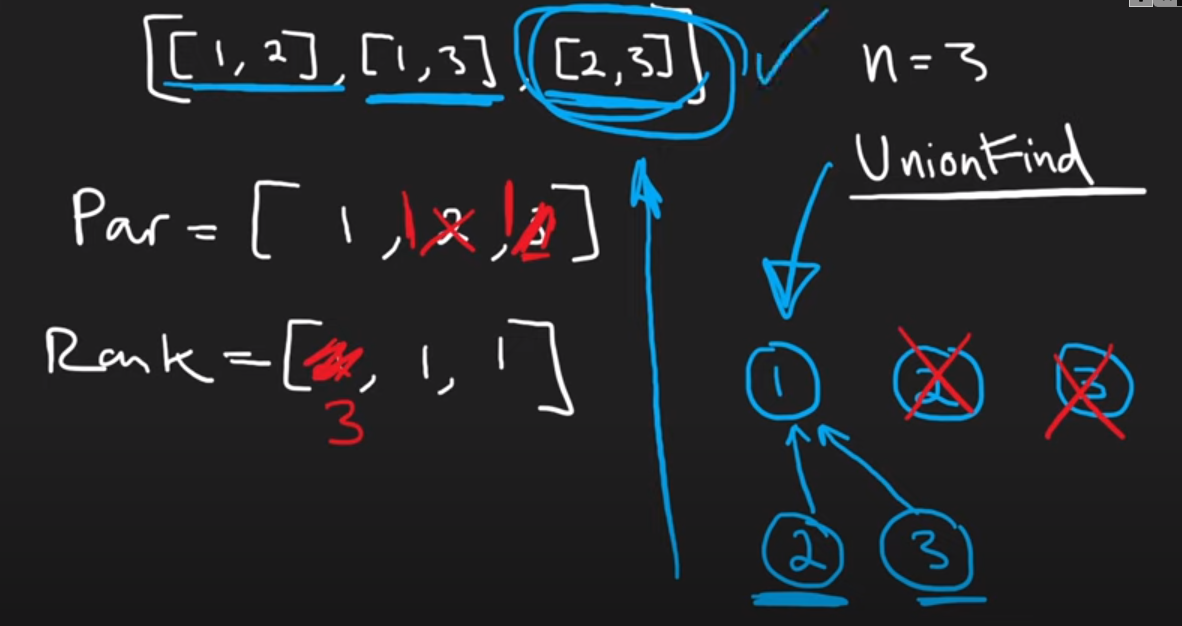 [[1,2], [1,3], [2,3]]
n=3
UnionFind
Par = [ 1, 1 2, 1 3 ]
Rank = [ , 1, 1 ]
3
1 2 3
2 3